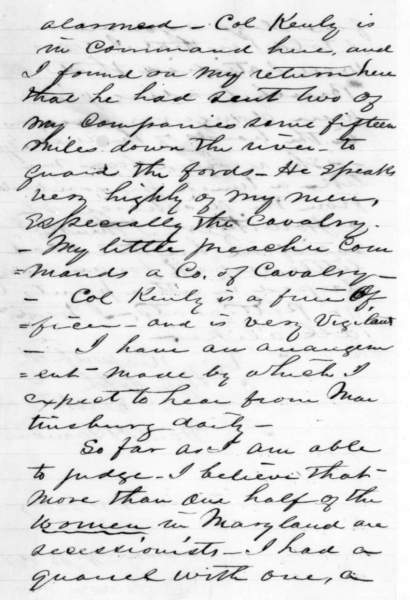 alarmed - Col Kenly is
in Command here, and
I found on my return here
that he had sent two of
my Companies some fifteen
miles down the river - to
guard the fords - He speaks
very highly of my men,
Especially the Cavalry.
- My little preacher Com
=mands a Co. of Cavalry -
- Col Kenly is a fine Of
=ficer - and is very Vigilant
- I have an arrangem
=ent made by which I
expect to hear from Mar
tinsburg daily -
So far as I am able
to judge - I believe that
more than one half of the
women in Maryland are
secessionists - I had a
quarrel with one, a